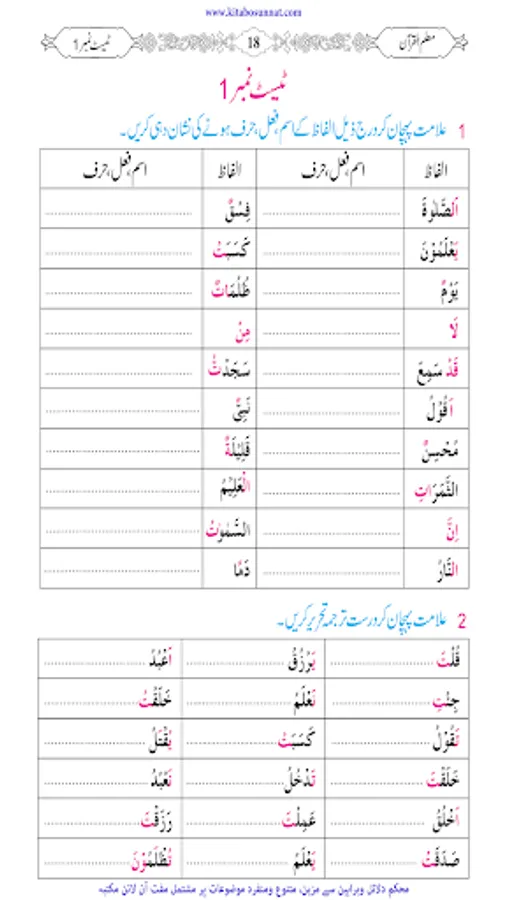 www.kitabosunnat.com
معلم القرآن 18 ٹیسٹ نمبر 1
ٹیسٹ نمبر 1
1 علامت پہچان کر درج ذیل الفاظ کے اسم، فعل، حرف ہونے کی نشان دہی کریں۔
الفاظ اسم، فعل، حرف الفاظ اسم، فعل، حرف
اَلصَّلٰوةَ ........ فِسْقٌ ........
يَعْلَمُوْنَ ........ كَسَبَتْ ........
يَوْمٌ ........ ظُلُمَاتٌ ........
لَا ........ مِنْ ........
قَدْ سَمِعَ ........ سَجَدْتُ ........
اَقُوْلُ ........ نَبِيٌّ ........
مُحْسِنٌ ........ قَلِيْلَةٌ ........
الثَّمَرَاتِ ........ الْعَلِيْمُ ........
اِنَّ ........ السَّمٰوٰتُ ........
النَّارُ ........ دَمًا ........
2 علامت پہچان کر درست ترجمہ تحریر کریں۔
قُلْتَ ........ يَرْزُقُ ........ اَعْبُدُ ........
جِئْتِ ........ نَعْلَمُ ........ خَلَقْتُ ........
نَقُوْلُ ........ كَسَبَتْ ........ يُقْتَلُ ........
خَلَقْتَ ........ تَدْخُلُ ........ نَعْبُدُ ........
اَخْلُقُ ........ عَمِلَتْ ........ رَزَقْتَ ........
صَدَقْتَ ........ يَعْلَمُ ........ تُظْلَمُوْنَ ........
محکم دلائل وبراہین سے مزین، متنوع ومنفرد موضوعات پر مشتمل مفت آن لائن مکتبہ